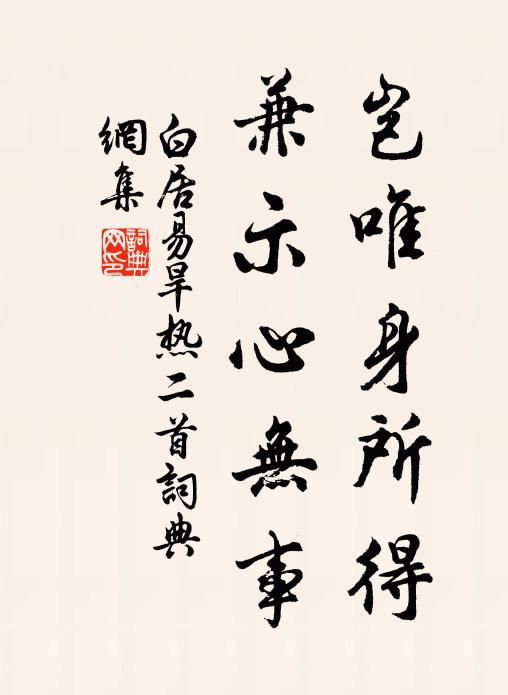 豈唯身所得
兼示心無事
白居易旱热二首詞典
網集
詞典
网印